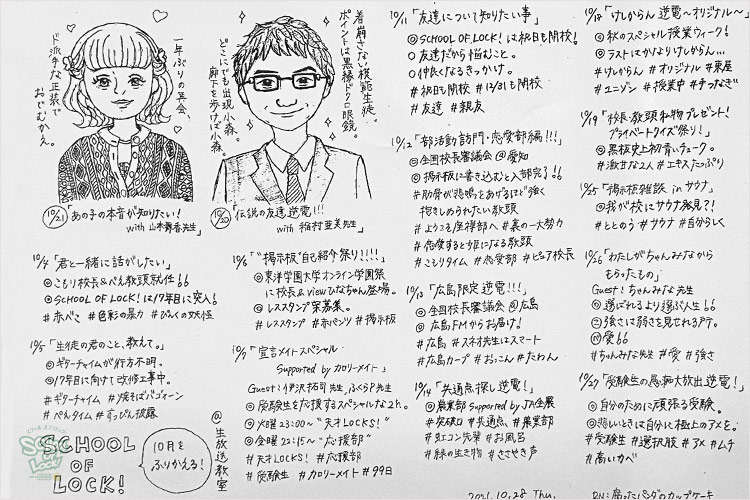 一年ぶりの再会、
ド派手な正装で
おでむかえ。
10/21「あの子の本音が知りたい!
with 山本舞香先生」
着崩さない模範生徒。
ポイントは黒縁ドクロ眼鏡。
どこにでも出現小森。
廊下を歩けば小森。
10/20「伝説の友達逆電!!!
with 稲村亜美先生」
10/4「君と一緒に話がしたい」
◎こもり校長&ぺえ教頭就任!!
◎SCHOOL OF LOCK!は17年目に突入!
#赤べこ #色彩の暴力 #ぴんくの妖怪
10/5「生徒の君のこと、教えて。」
◎ギターチャイムが行方不明。
◎17年目に向けて改修工事中。
#ギターチャイム #焼そばバゴーン
#ぺんタイム #すっぴん披露
SCHOOL
OF
LOCK!
10月を
ふりかえる!
@生放送教室
10/6「"掲示板"自己紹介祭り!!!!」
◎東洋学園大学オンライン学園祭
に校長&viewひなちゃん登場。
◎レススタンプ案募集。
#レススタンプ #赤パンツ #掲示板
10/7「宣言メイトスペシャル
Supported by カロリーメイト」
Guest:伊沢拓司先生,ふくらP先生
◎受験生を応援するスペシャルな2h。
◎火曜23:00~"天才LOCKS!"
◎金曜22:15~"応援部"
#天才LOCKS! #応援部
#受験生 #カロリーメイト #99日
10/11「友達について知りたい事」
◎SCHOOL OF LOCK!は祝日も開校!
○友達だから悩むこと。
○仲良くなるきっかけ。
#祝日も開校 #12/31も開校
#友達 #親友
10/12「部活動訪門・恋愛部編!!!」
◎全国校長審議会@愛知
◎掲示板に書き込むと入部完了!!
#肋骨が悲鳴をあげるほど強く
抱きしめられたい教頭
#ようこそ座禅部へ #裏の一大勢力
#恋愛すると姫になる教頭
#こもりタイム #恋愛部 #ピュア校長
10/13「広島限定逆電!!!」
◎全国校長審議会@広島
◎広島FMからお届け!
#広島 #スネオ先生はスマート
#広島カープ #おっこん #たわん
10/14「共通点探し逆電!」
◎農業部 Supported by JA全農
#灰緑口 #共通点 #農業部
#虹コン先輩 #お風呂
#緑の生き物 #ささやき声
2021.10.28 Thu.
10/18「けしからん逆電~オリジナル~」
◎秋のスペシャル授業ウィーク!
◎ラストはかなりけしからん…
#けしからん #オリジナル #裏屋
#ユニゾン #授業中 #手つなぎ
10/19「校長・教頭私物プレゼント!
プライベートクイズ祭り!」
◎黒板史上初青いチョーク。
#激甘な2人 #エキスたっぷり
10/25「掲示板雑談 in サウナ」
◎我が校にサウナ発見?!
#ととのう #サウナ #自分らしく
10/26「わたしがちゃんみなから
もらったもの」
Guest:ちゃんみな先生
◎選ばれるより選ぶ人生!!
◎強さは弱さを見せれる所。
◎愛!!
#ちゃんみな先生 #愛 #強さ
10/27「受験生の愚痴大放出逆電!」
◎自分のために頑張る受験。
◎悲しいときは自分に極上のアメを。
#受験生 #選択肢 #アメ #ムチ
#高いカベ
RN:腐ったパンダのカップケーキ